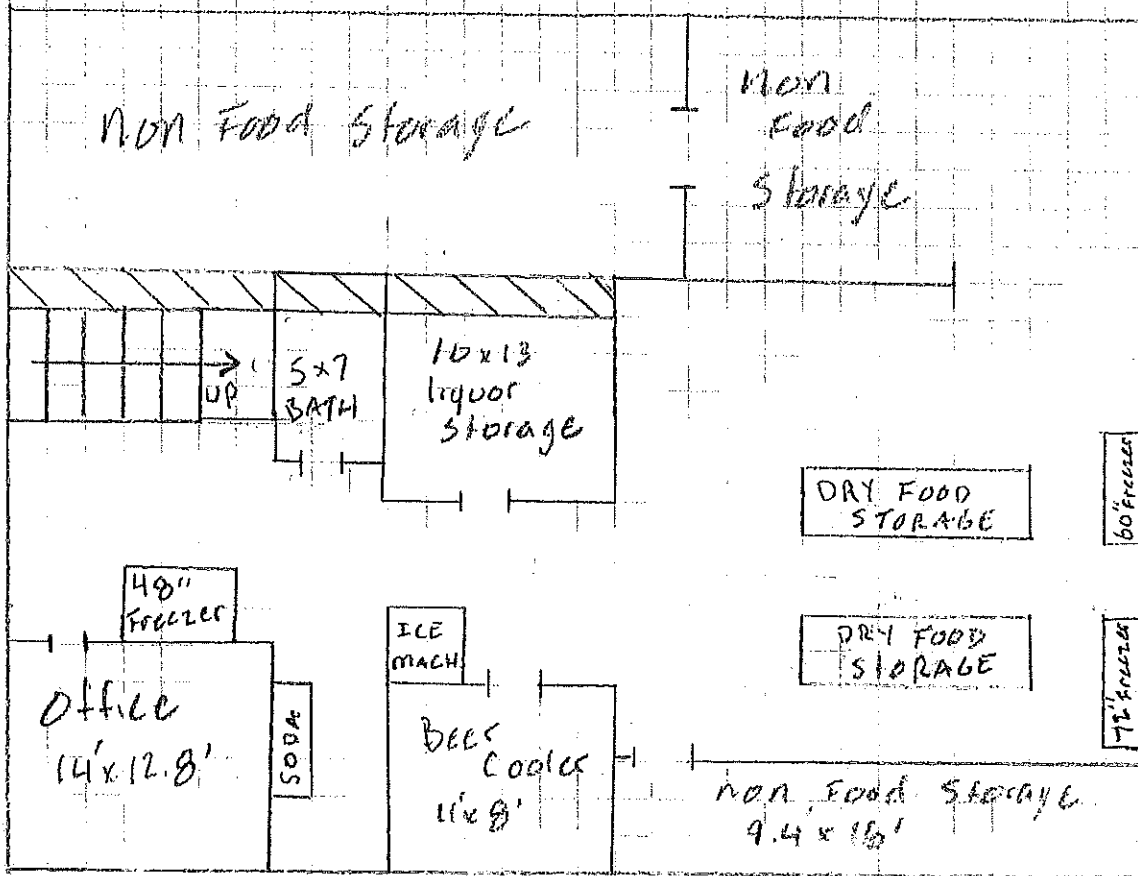 Non Food Storage
Non
Food
Storage
UP
5x7
BATH
10x13
liquor
storage
DRY FOOD
STORAGE
60" Freezer
48"
Freezer
ICE
MACH
DRY FOOD
STORAGE
72" Freezer
Office
14'x12.8'
SODA
Beer
Cooler
11'x8'
non Food Storage
9.4 x